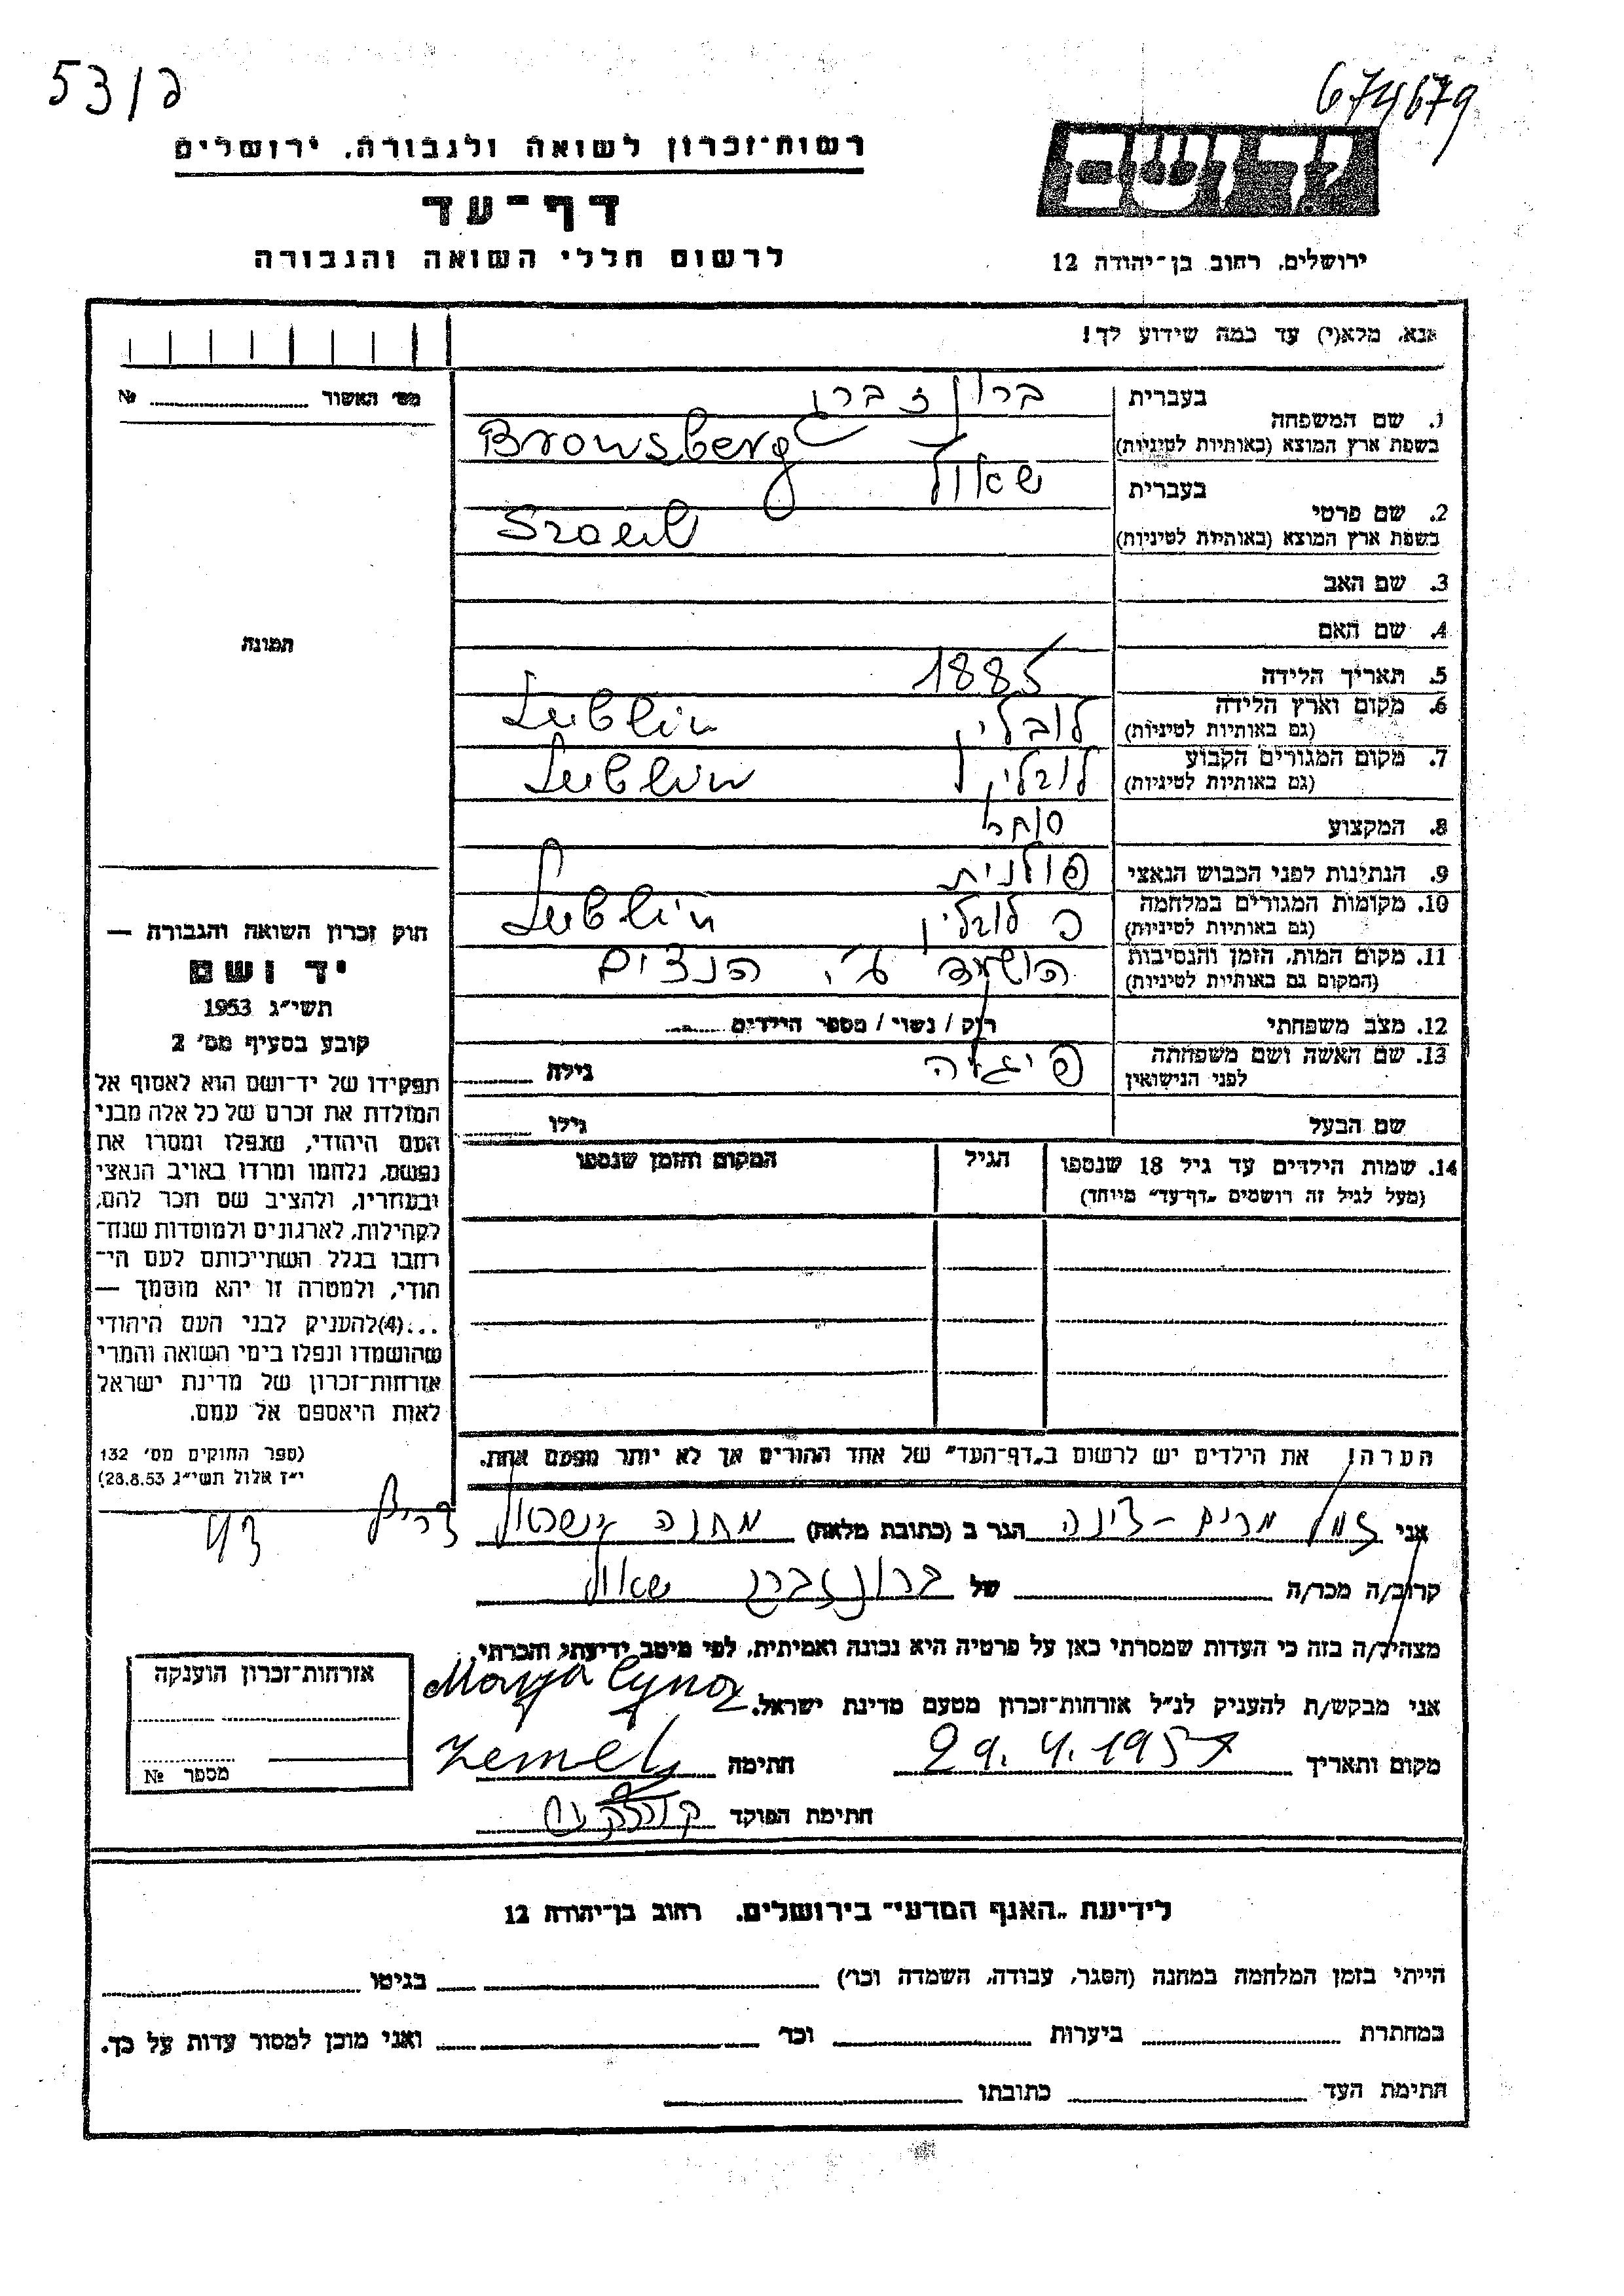 53/ם
674679
רשות־זכרון לשואה ולגבורה, ירושלים
דף־עד
לרשום חללי השואה והגבורה
יד ושם
ירושלים, רחוב בן־יהודה 12
אנא, מלא(י) עד כמה שידוע לך!
מס׳ האשור № ........
1. שם המשפחה
בעברית
ברונזברג
בשפת ארץ המוצא (באותיות לטיניות)
Bronsberg
2. שם פרטי
בעברית
שאול
בשפת ארץ המוצא (באותיות לטיניות)
3. שם האב
4. שם האם
5. תאריך הלידה
1885
6. מקום וארץ הלידה
(גם באותיות לטיניות)
לובלין Lublin
7. מקום המגורים הקבוע
(גם באותיות לטיניות)
לובלין Lublin
8. המקצוע
סוחר
9. הנתינות לפני הכבוש הנאצי
פולנית
10. מקומות המגורים במלחמה
(גם באותיות לטיניות)
לובלין Lublin
11. מקום המות, הזמן והנסיבות
(המקום גם באותיות לטיניות)
הושמד ע״י הנצים
12. מצב משפחתי
רוק / נשוי / מספר הילדים
13. שם האשה ושם משפחתה
לפני הנישואין
פיגלה
גילה
שם הבעל
גילו
14. שמות הילדים עד גיל 18 שנספו
(מעל לגיל זה רושמים „דף־עד״ מיוחד)
הגיל
המקום והזמן שנספו
הערה! את הילדים יש לרשום ב„דף־העד״ של אחד ההורים אך לא יותר מפעם אחת.
תמונה
חוק זכרון השואה והגבורה —
יד ושם
תשי״ג 1953
קובע בסעיף מס׳ 2
תפקידו של יד־ושם הוא לאסוף אל
המולדת את זכרם של כל אלה מבני
העם היהודי, שנפלו ומסרו את
נפשם, נלחמו ומרדו באויב הנאצי
ובעוזריו, ולהציב שם וזכר להם,
לקהילות, לארגונים ולמוסדות שנח־
רבו בגלל השתייכותם לעם הי־
הודי, ולמטרה זו יהא מוסמך —
...(4)להעניק לבני העם היהודי
שהושמדו ונפלו בימי השואה והמרי
אזרחות־זכרון של מדינת ישראל
לאות היאספם אל עמם.
(ספר החוקים מס׳ 132
י״ז אלול תשי״ג 28.8.53)
אני זמל מרים-צינה הגר ב (כתובת מלאה) מחנה ישראל צריף
קרוב/ה מכר/ה של ברונזברג שאול
מצהיר/ה בזה כי העדות שמסרתי כאן על פרטיה היא נכונה ואמיתית, לפי מיטב ידיעתי והכרתי.
אני מבקש/ת להעניק לנ״ל אזרחות־זכרון מטעם מדינת ישראל.
מקום ותאריך 29.4.1957 חתימה Marja Cyna Zemel
חתימת הפוקד
אזרחות־זכרון הוענקה
מספר №
לידיעת „האגף המדעי״ בירושלים, רחוב בן־יהודה 12
הייתי בזמן המלחמה במחנה (הסגר, עבודה, השמדה וכו׳) בגיטו
במחתרת ביערות וכו׳ ואני מוכן למסור עדות על כך.
חתימת העד כתובתו